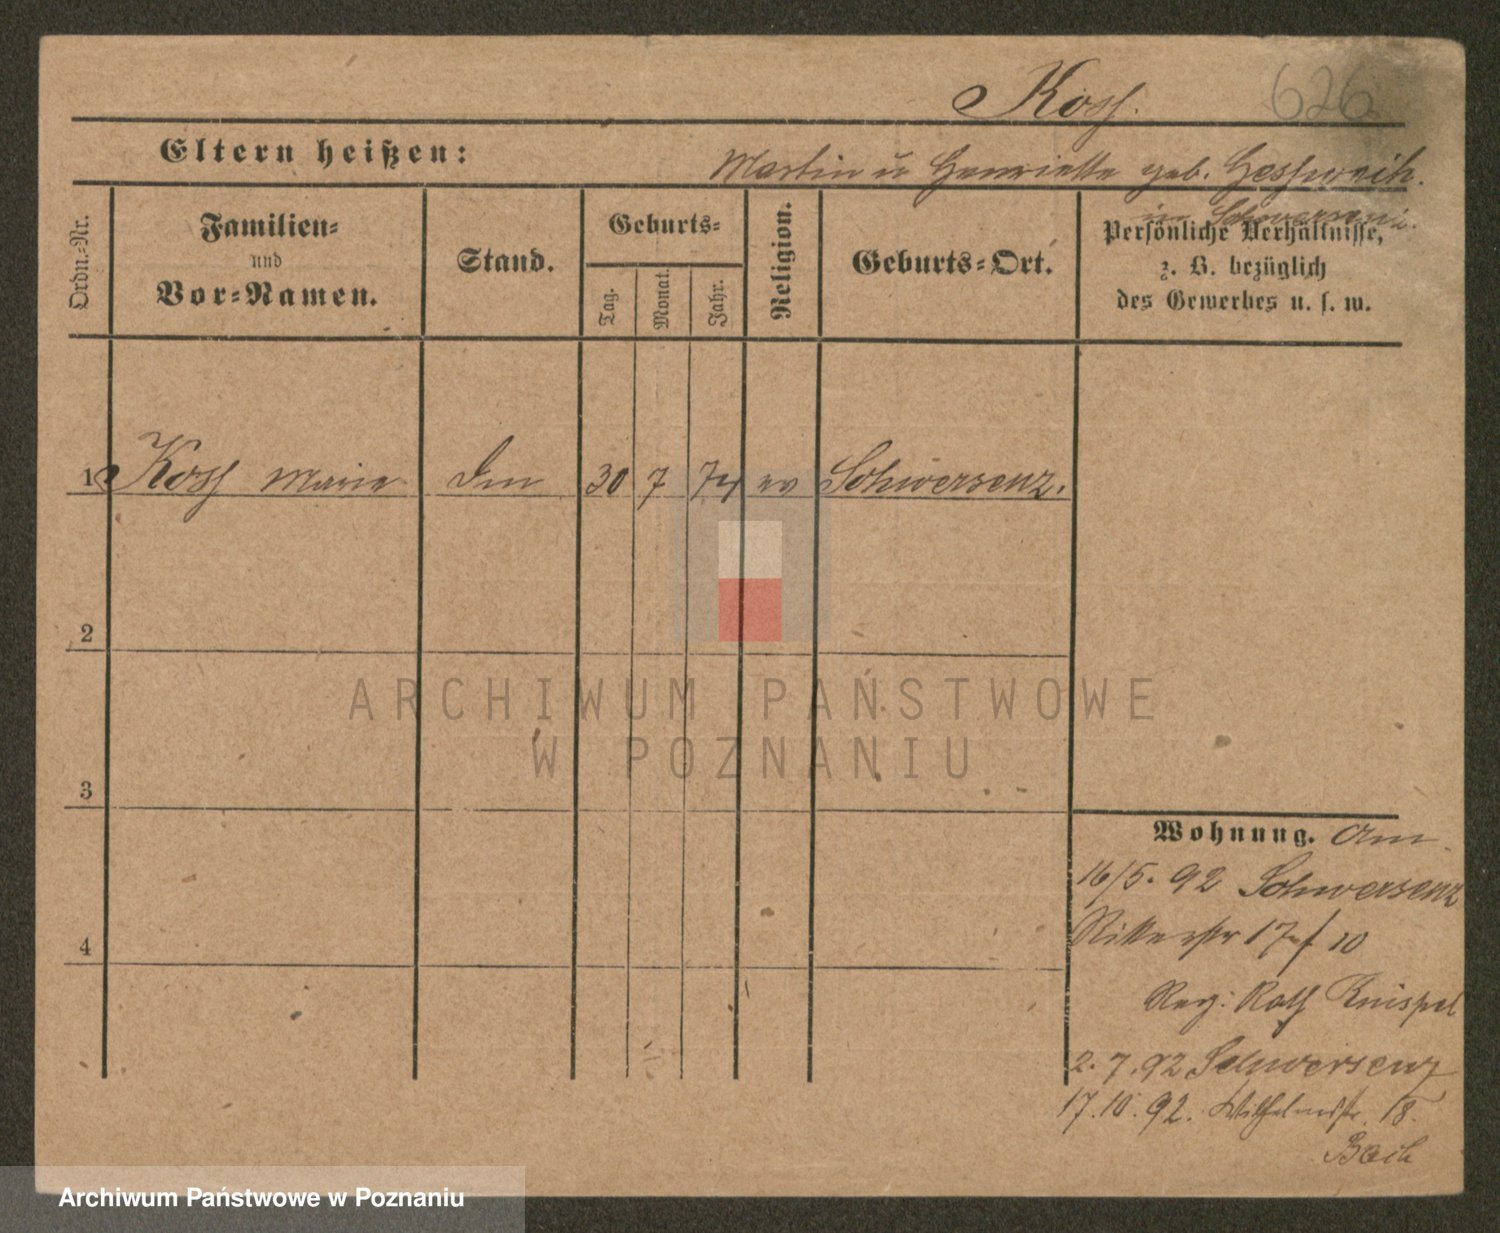 Koss.
626
Eltern heißen:
Martin u Henriette geb.
in Schwersenz.
Ordn.-Nr.
Familien-
und
Vor-Namen.
Stand.
Geburts-
Tag.
Monat.
Jahr.
Religion.
Geburts-Ort.
Persönliche Verhältnisse,
z. B. bezüglich
des Gewerbes u. s. w.
1 Koss Marie 30 7 74 ev Schwersenz.
2
3
4
Wohnung. Am
16/5. 92 Schwersenz
Ritterstr 17
Knispel
2. 7. 92 Schwersenz
17. 10. 92. Wilhelmstr. 18.
ARCHIWUM PAŃSTWOWE
W POZNANIU
Archiwum Państwowe w Poznaniu